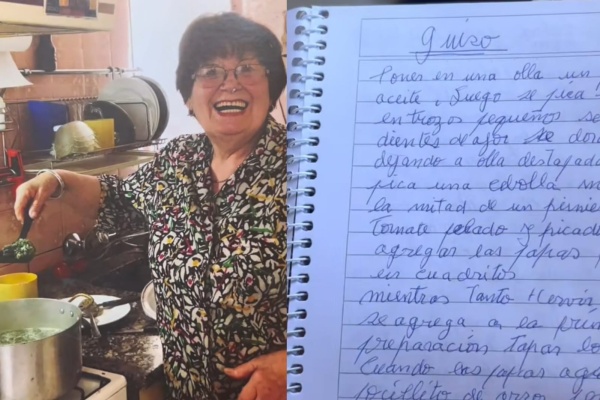 guiso
Poner en una olla un
aceite, Luego se pica
en trozos pequeños se
dientes de ajos se dora
dejando a olla destapada
pica una cebolla
la mitad de un
Tomate pelado y picado
agregar las papas
en cuadritos
mientras Tanto Hervir
se agrega a la
preparación Tapar
Cuando las papas
de arroz